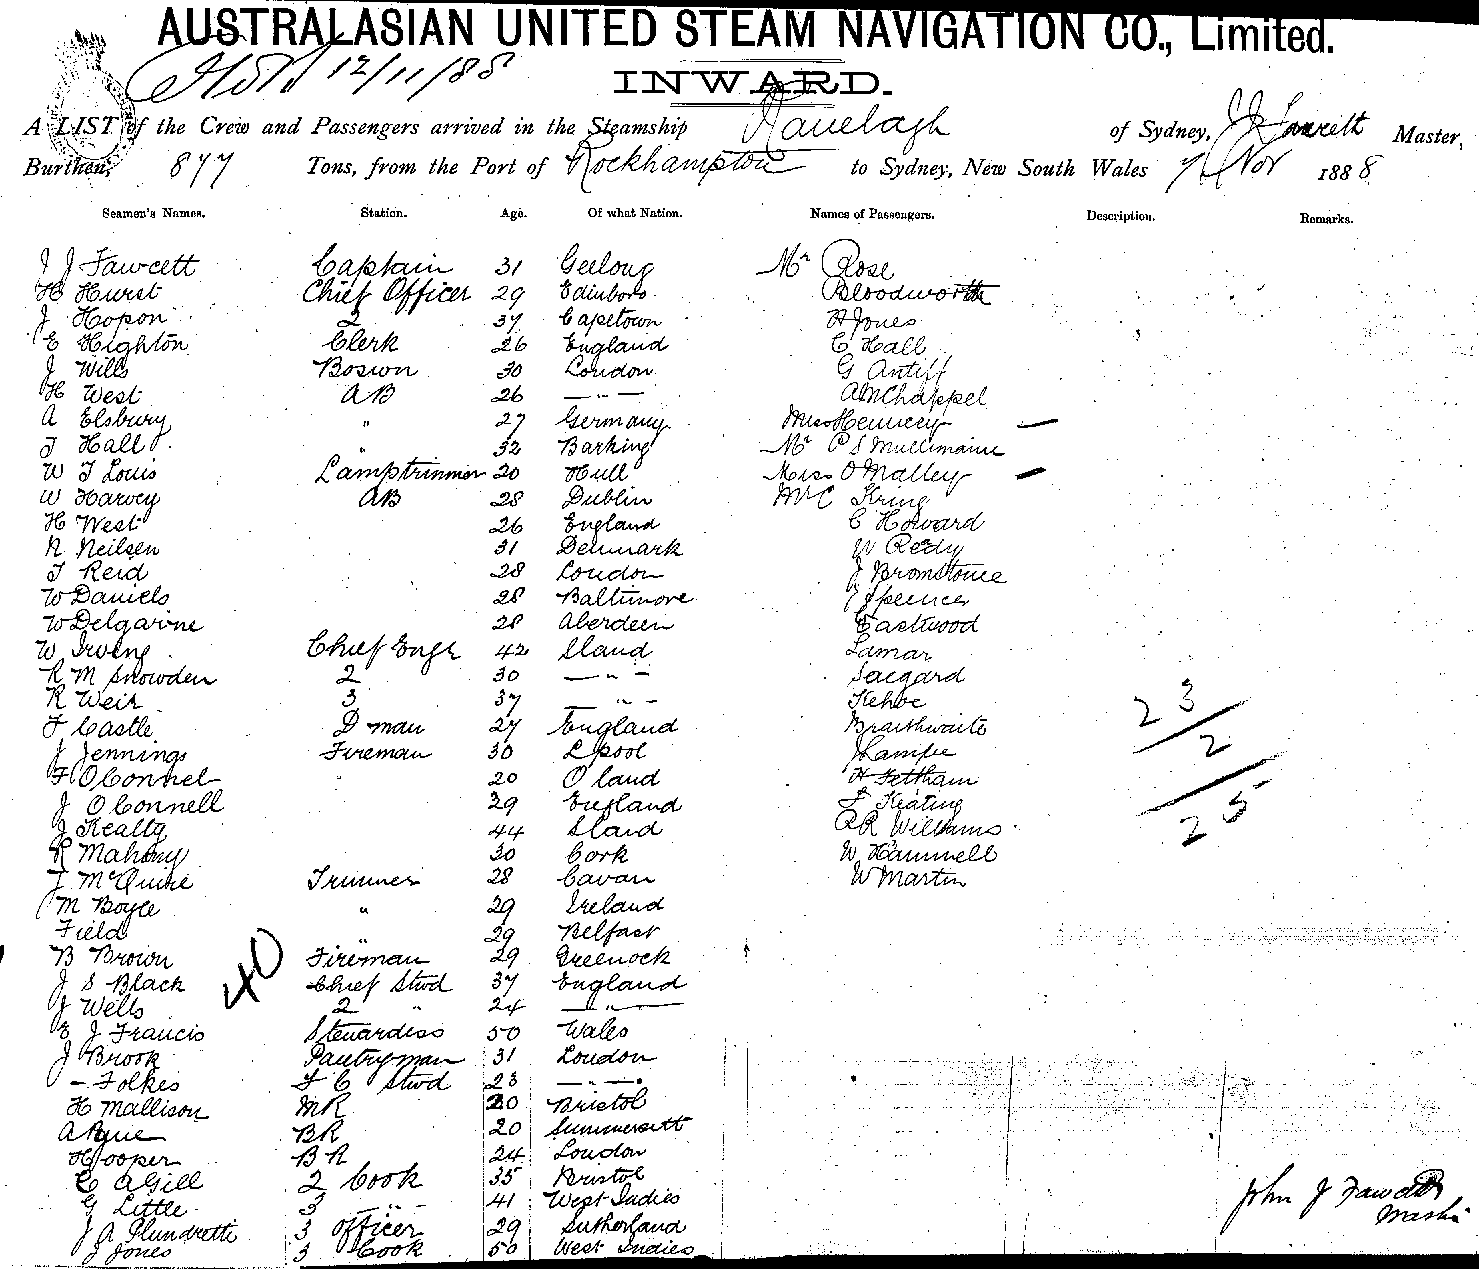 AUSTRALASIAN UNITED STEAM NAVIGATION CO., Limited.
12/11/88
INWARD.
A LIST of the Crew and Passengers arrived in the Steamship Ranelagh of Sydney, J J Fawcett Master,
Burthen, 877 Tons, from the Port of Rockhampton to Sydney, New South Wales 7 Nov 1888
Seamen's Names. Station. Age. Of what Nation. Names of Passengers. Description. Remarks.
J J Fawcett Captain 31 Geelong Mr Rose
H Hurst Chief Officer 29 Edinboro Bloodworth
J Hopson 2 37 Capetown H Jones
E Highton Clerk 26 England C Hall
J Wills Bosun 30 London G Antiff
H West AB 26 — " — A M Chappel
A Elsbury " 27 Germany Miss Hennecy —
J Hall " 32 Barking Mr P S Mullimaine
W J Louis Lamptrimmer 20 Hull Miss O Malley —
W Harvey AB 28 Dublin Mr C King
H West 26 England C Howard
N Neilsen 31 Denmark W Redy
J Reid 28 London J Bromstone
W Daniels 28 Baltimore J Spencer
W Delgarne 28 Aberdeen Eastwood
W Irving Chief Engr 42 Sland Lamar
R M Snowden 2 30 — " — Sacgard
R Weir 3 37 — " — Kehoe
F Castle D man 27 England Braithwaite
J Jennings Fireman 30 Lpool J Lampe
F O Connel " 20 O land H Feltham
J O Connell 29 England F Keating
J Kealty 44 Sland R Williams
R Mahony 30 Cork W Hammell
J McQuire Trimmer 28 Cavan W Martin
M Boyle " 29 Ireland
Field " 29 Belfast
B Brown Fireman 29 Greenock
J S Black Chief Stwd 37 England
J Wells 2 " 24 — " —
E J Francis Stewardess 50 Wales
J Brook Pantryman 31 London
- Folkes F C Stwd 23 — " —
H Mallison MR 20 Bristol
A Pyne BR 20 Summersett
Hooper BR 24 London
C A Gill 2 Cook 35 Bristol
G Little 3 — " — 41 West Indies
J A Plundrette 3 Officer 29 Sutherland
J Jones 3 Cook 50 West Indies
40
23
2
25
John J Fawcett
Master